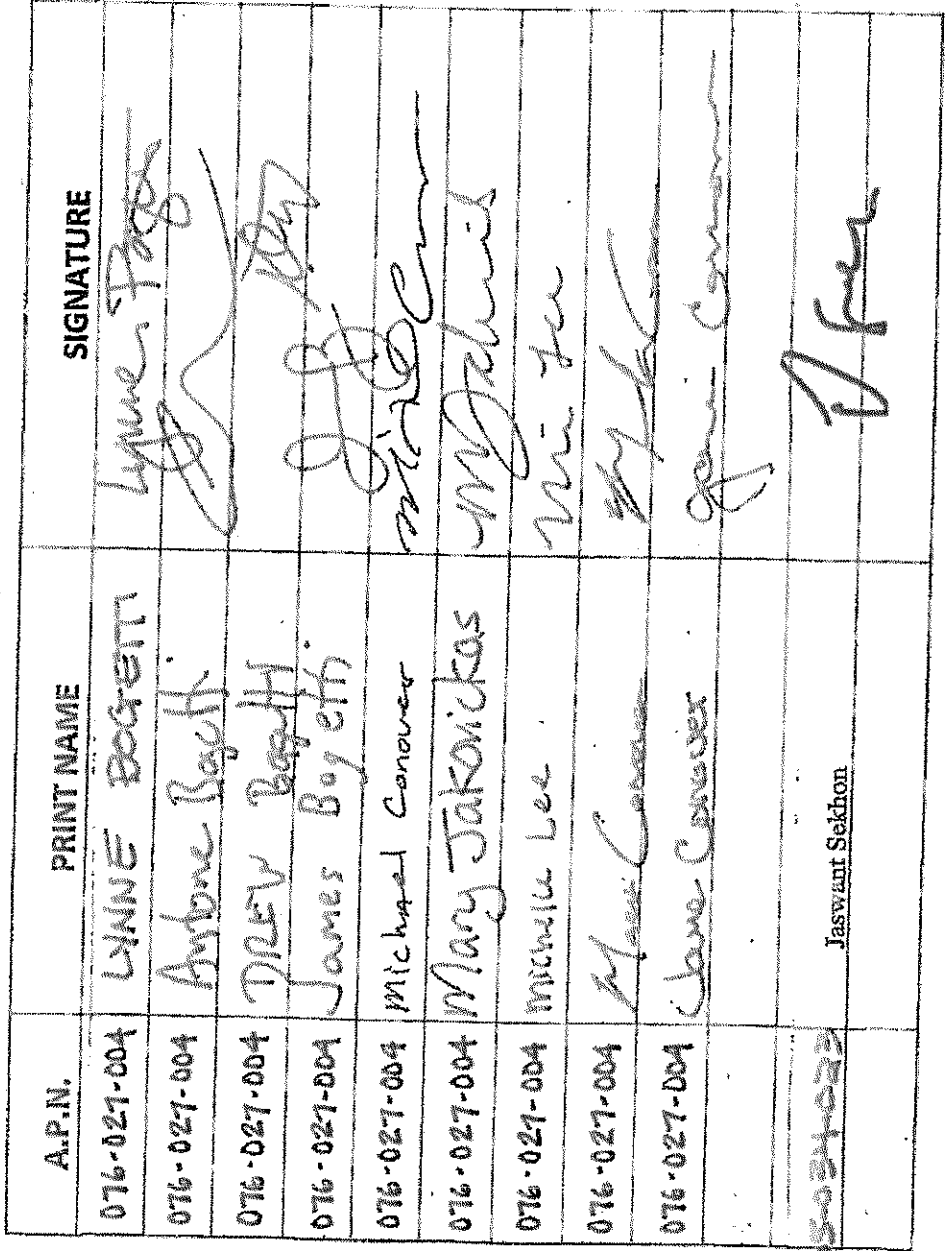 A.P.N. PRINT NAME SIGNATURE
076-027-004 LYNNE BOGETTI Lynne
076-027-004 Antone Bogetti
076-027-004 DREW Bogetti
076-027-004 James Bogetti
076-027-004 Michael Conover
076-027-004 Mary Jakovickas
076-027-004 Michele Lee
076-027-004 Conover
076-027-004 Jamie Conover Jamie Conover
Jaswant Sekhon